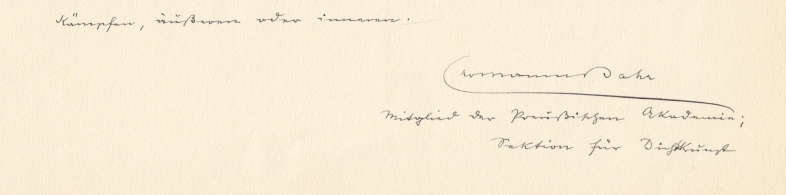 Kämpfen, äußeren oder inneren.
Hermann Bahr
Mitglied der Preußischen Akademie;
Sektion für Dichtkunst